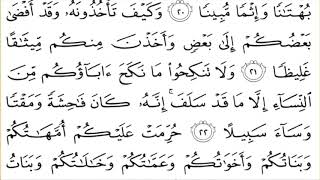 بُهْتَٰنًا وَإِثْمًا مُّبِينًا ٢٠ وَكَيْفَ تَأْخُذُونَهُۥ وَقَدْ أَفْضَىٰ
بَعْضُكُمْ إِلَىٰ بَعْضٍ وَأَخَذْنَ مِنكُم مِّيثَٰقًا
غَلِيظًا ٢١ وَلَا تَنكِحُوا۟ مَا نَكَحَ ءَابَآؤُكُم مِّنَ
ٱلنِّسَآءِ إِلَّا مَا قَدْ سَلَفَ ۚ إِنَّهُۥ كَانَ فَٰحِشَةً وَمَقْتًا
وَسَآءَ سَبِيلًا ٢٢ حُرِّمَتْ عَلَيْكُمْ أُمَّهَٰتُكُمْ
وَبَنَاتُكُمْ وَأَخَوَٰتُكُمْ وَعَمَّٰتُكُمْ وَخَٰلَٰتُكُمْ وَبَنَاتُ